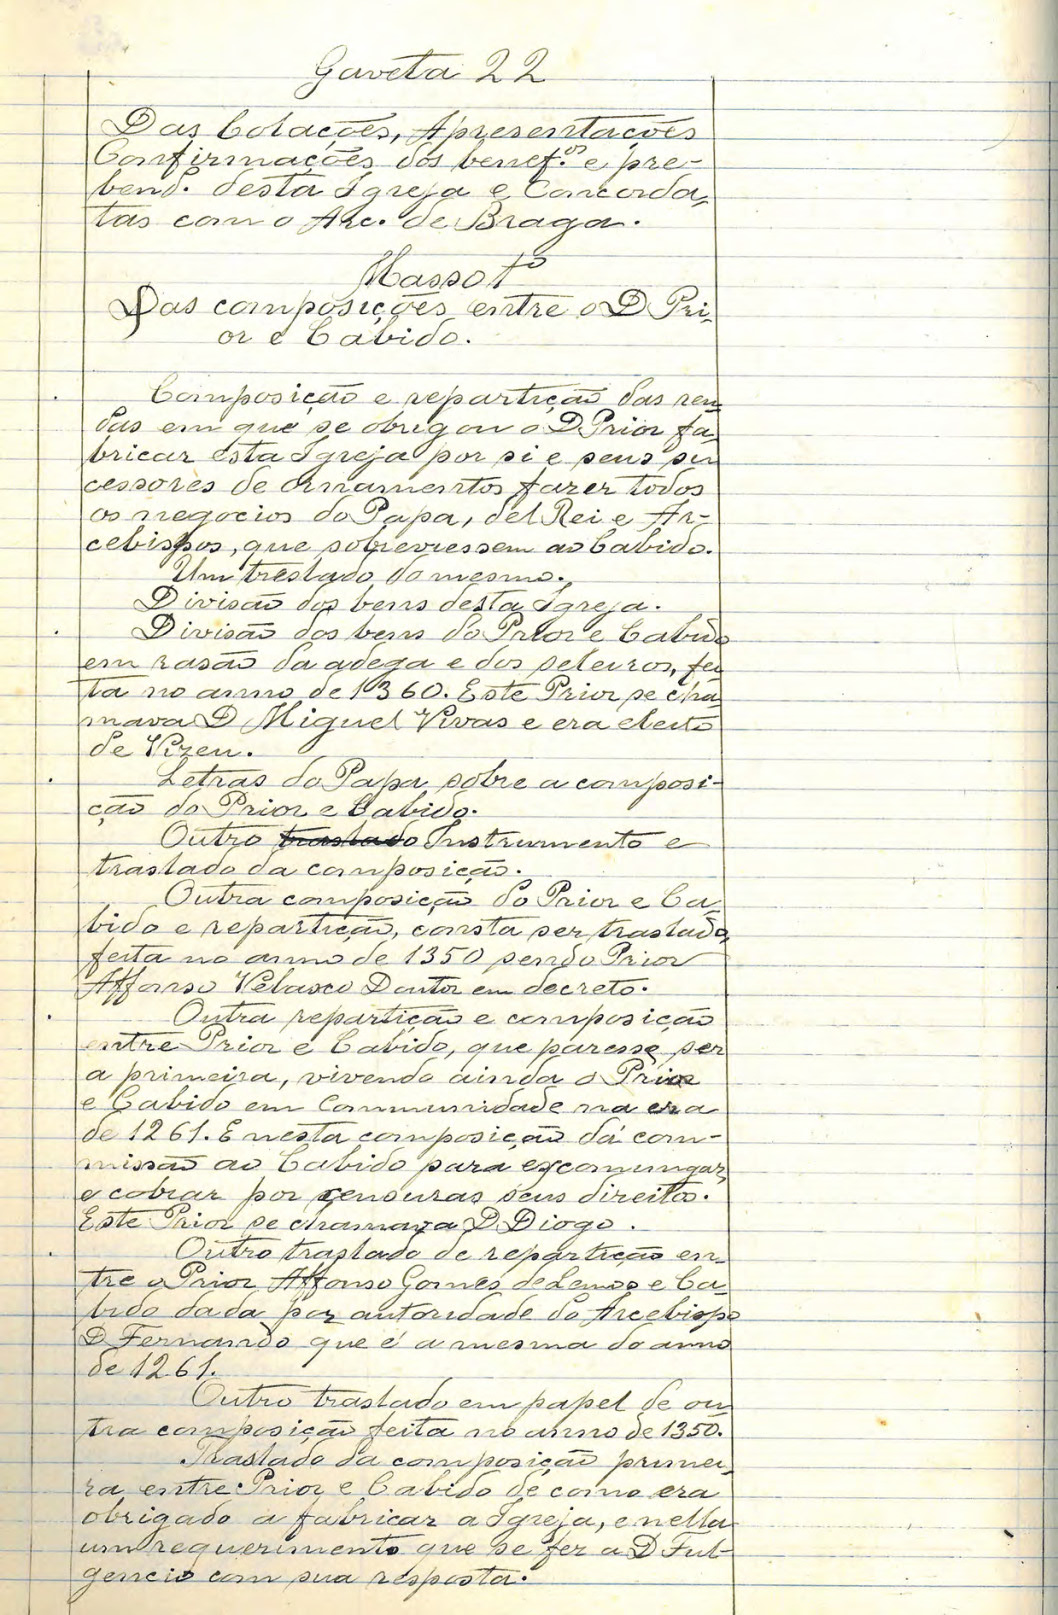 Gaveta 22
Das Colações, Apresentações
Confirmações dos benef.os e pre-
bend. desta Igreja e Concorda-
tas com o Arc. de Braga.
Masso 1º
Das composições entre o D Pri-
or e Cabido.
Composição e repartição das ren-
das em que se obrigou o D Prior fa-
bricar esta Igreja por si e seus su-
cessores de ornamentos fazer todos
os negocios do Papa, del Rei e Ar-
cebispos, que sobreviessem ao Cabido.
Um treslado do mesmo.
Divisão dos bens desta Igreja.
Divisão dos bens do Prior e Cabido
em rasão da adega e dos seleiros, fei-
ta no anno de 1360. Este Prior se cha-
mava D Miguel Vivas e era eleito
de Vizeu.
Letras do Papa sobre a composi-
ção do Prior e Cabido.
Outro traslado Instrumento e
traslado da composição.
Outra composição do Prior e Ca-
bido e repartição, consta ser traslado,
feita no anno de 1350 sendo Prior
Affonso Velasco Doutor em decreto.
Outra repartição e composição
entre Prior e Cabido, que paresse ser
a primeira, vivendo ainda o Prior
e Cabido em Communidade na era
de 1261. E nesta composição dá com-
missão ao Cabido para excomungar,
e cobrar por censuras seus direitos.
Este Prior se chamava D. Diogo.
Outro traslado de repartição en-
tre o Prior Affonso Gomes de Lemos e Ca-
bido dada por autoridade do Arcebispo
D Fernando que é a mesma do anno
de 1261.
Outro traslado em papel de ou-
tra composição feita no anno de 1350.
Traslado da composição primei-
ra entre Prior e Cabido de como era
obrigado a fabricar a Igreja, e nella
um requerimento que se fez a D Ful-
gencio com sua resposta.